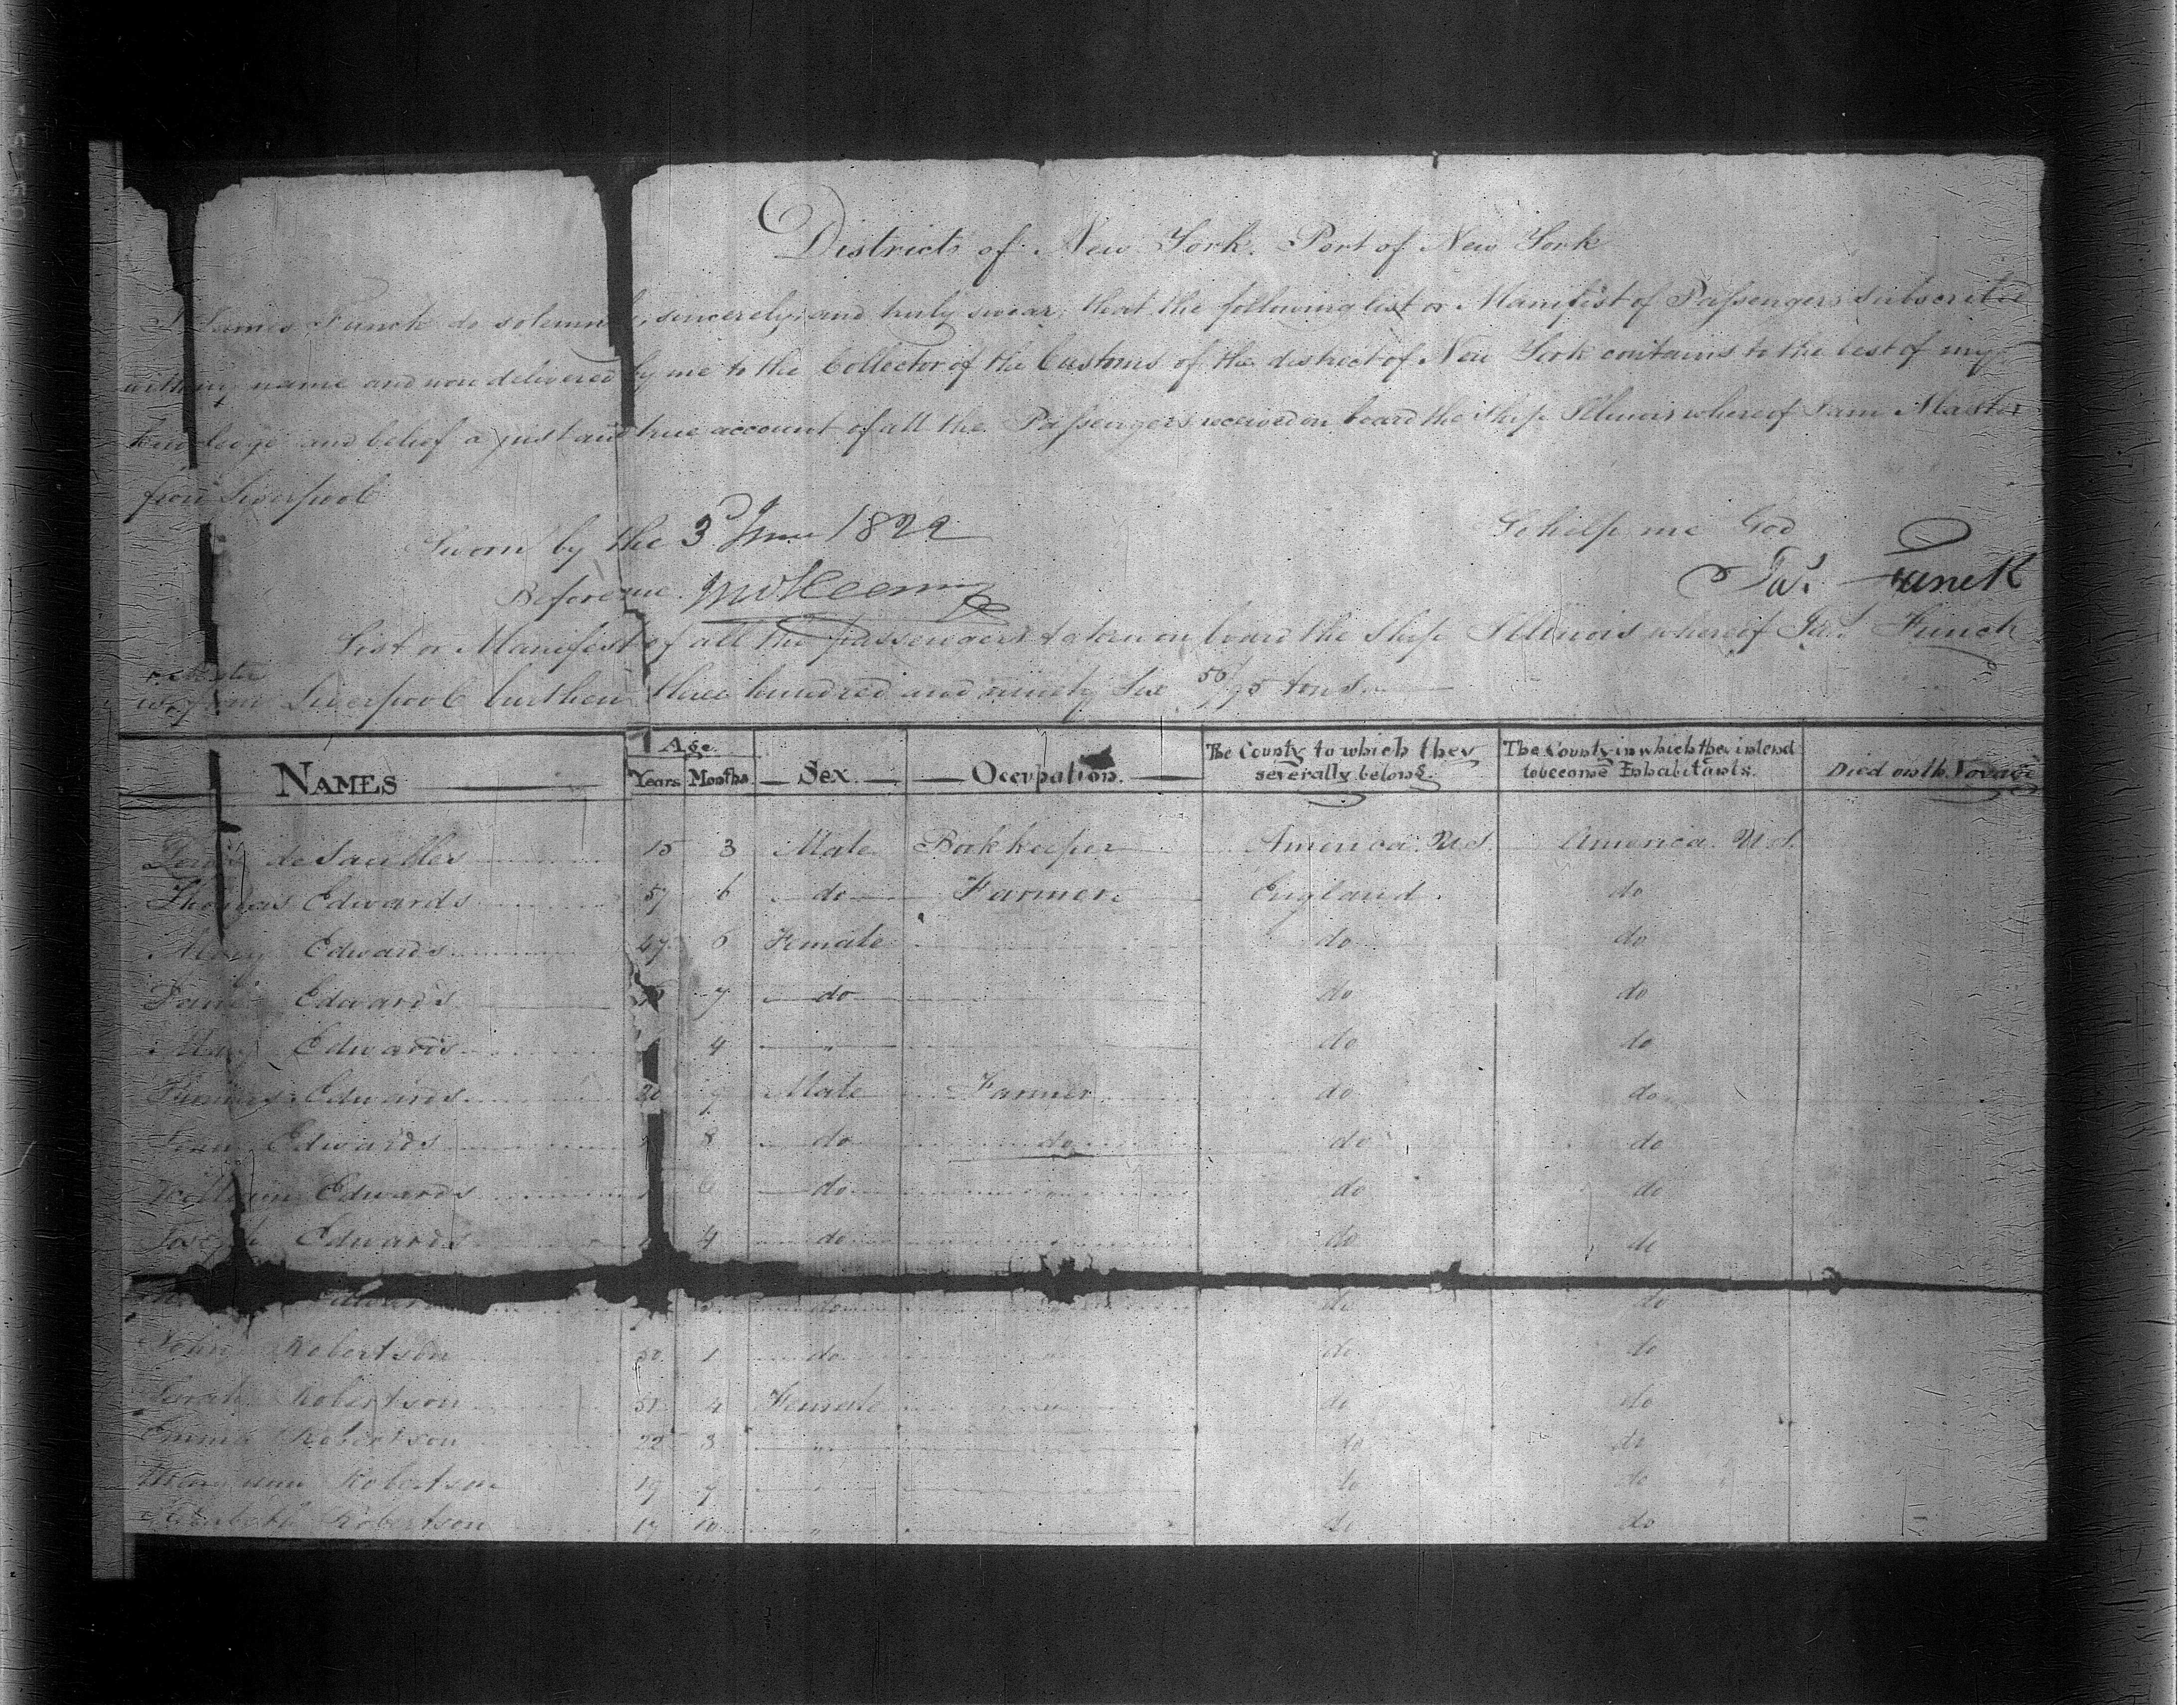 Districts of New York. Port of New York
I James Funck do solemnly, sincerely, and truly swear, that the following list or Manifest of Passengers subscribed
with my name and now delivered by me to the Collector of the Customs of the district of New York contains to the best of my
knowledge and belief a just and true account of all the Passengers received on board the Ship Illinois whereof I am Master
from Liverpool
Sworn by the 3d June 1822 So help me God
Before me Jas. Funck
List or Manifest of all the passengers taken on board the Ship Illinois whereof Jas. Funck
is Master
from Liverpool burthen three hundred and ninety Six 50/95 tons
NAMES Age Years Months Sex Occupation. The County to which they severally belong. The County in which they intend to become Inhabitants. Died on the Voyage
15 3 Male Bookkeeper America. U.S. America. U.S.
Thomas Edwards 57 6 do Farmer England do
Mary Edwards 47 6 Female do do
Edwards 7 do do do
Mary Edwards 4 " do do
Edwards 20 9 Male Farmer do do
Edwards 8 do do do do
William Edwards 6 do do do
Joseph Edwards 4 do do do
do do do
John Robertson 50 1 do do do
Sarah Robertson 51 4 Female do do
Emma Robertson 22 3 " do do
Mary ann Robertson 19 9 " do do
Elizabeth Robertson 17 10 " do do